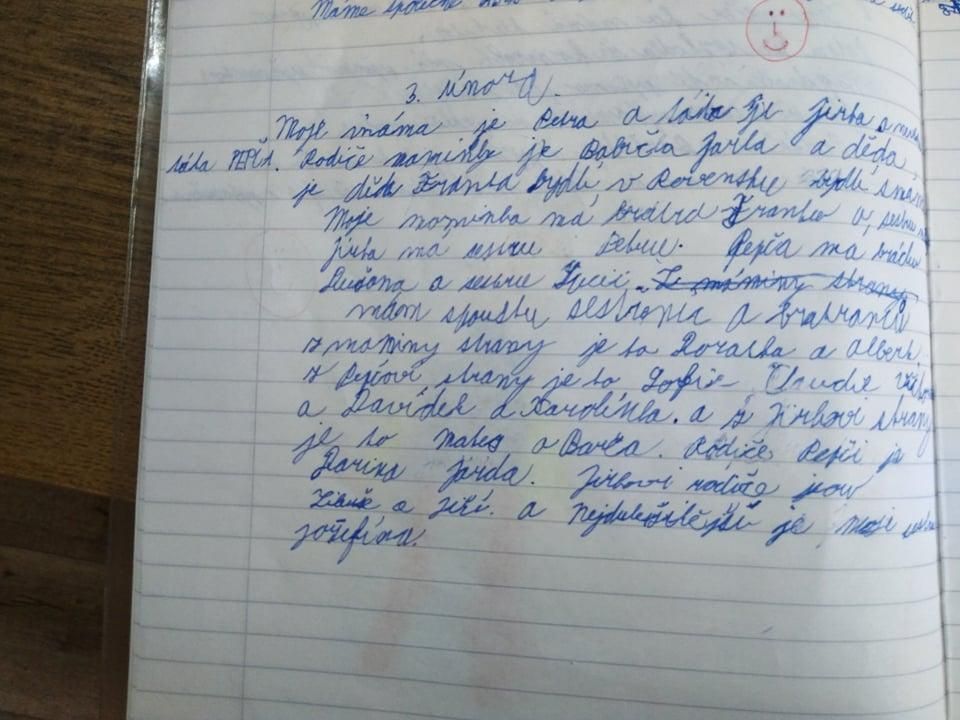 Máme společné
3. února.
Moje máma je Petra a táta je Jirka a
táta PEPČA. Rodiče maminky je Babička Jarka a děda
je děda Franta bydlí v Rovensku bydlí s
Moje maminka má bráchu Franka a, sestru
jirka má sestru Pepča má bráchu
Dušana a sestru Lucii. Z máminy strany
mám spoustu sestřenic a bratranců
z maminy strany je to Doratka a Albert
z Pepčovi strany je to Sofie, Claudie
a Davídek a Karolínka. a z Jirkovi strany
je to Mates a Barča. Rodiče Pepči je
Darina Jarda. Jirkovi rodiče jsou
Libuše a Jiří. a nejduležitější je moje
jozefína.